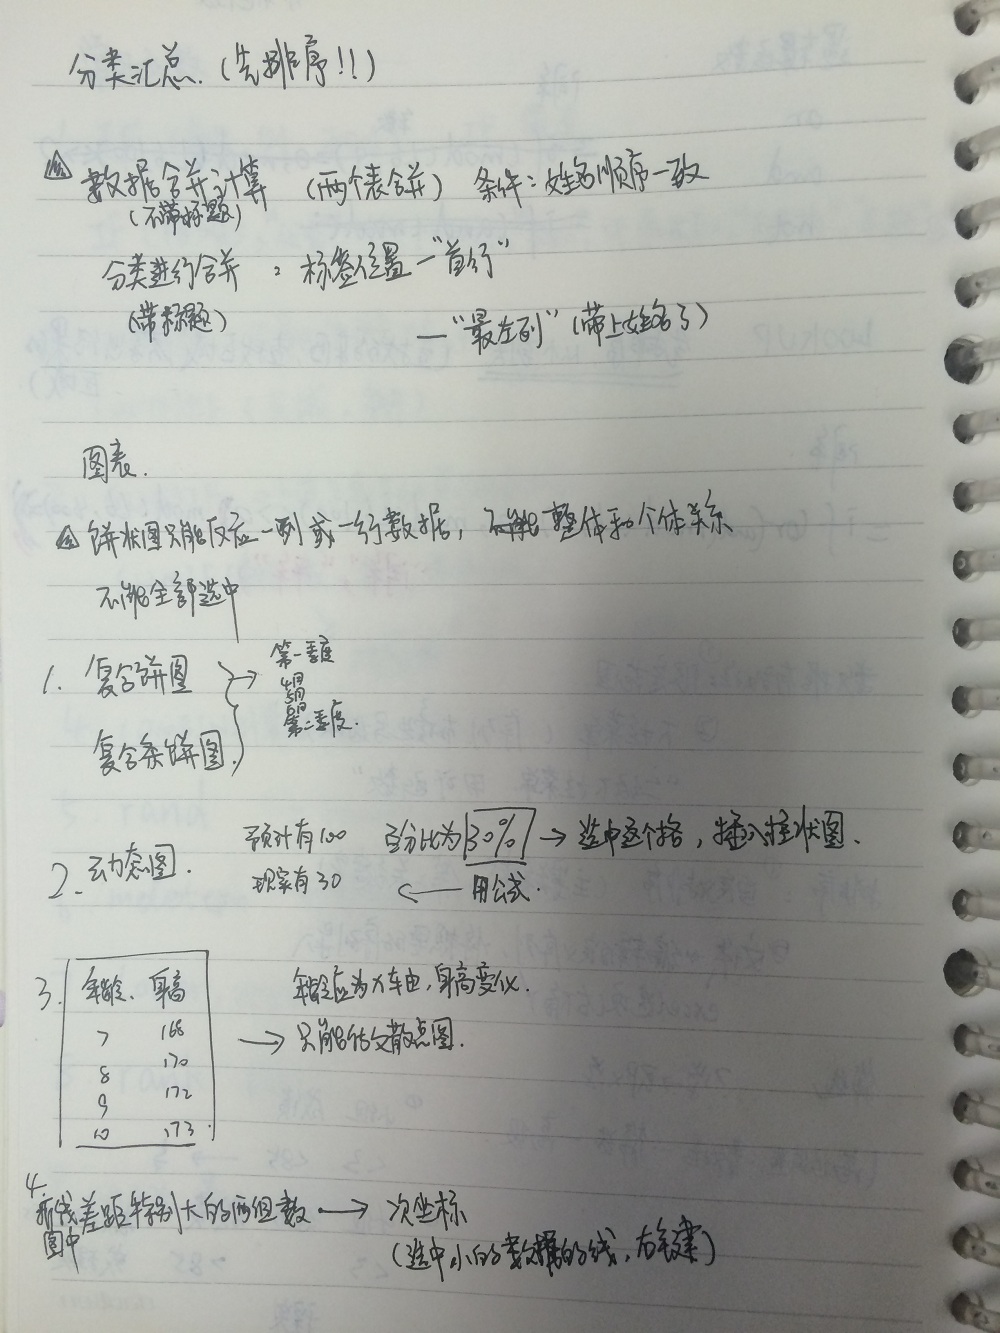 分类汇总.(先排序!!)
数据合并计算 (两个表合并) 条件:姓名顺序一致
(不带标题)
分类进行合并 : 标签位置—"首行"
(带标题)
—"最左列"(带上姓名了)
图表.
饼状图只能反应一列或一行数据, 不能整体和个体关系
不能全部选中
1. 复合饼图 → 第一季度
4月
5月
6月
第二季度.
复合条饼图.
2. 动态图. 预计有100 百分比为 30% → 选中这个格, 插入柱状图.
现实有30 ← 用公式.
3. 年龄. 身高 年龄应为X轴, 身高变化.
7 168 → 只能做散点图.
8 170
9 172
10 173
4. 折线图中 差距特别大的两组数 → 次坐标
(选中小的数据的线, 右键)